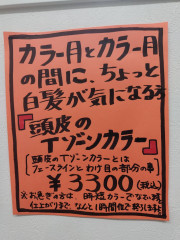 カラー月とカラー月
の間に、ちょっと
白髪が気になる方
『頭皮の
Tゾーンカラー』
頭皮のTゾーンカラーとは
フェースラインとわけ目の部分の事
¥3300(税込)
※お急ぎの方は、時短カラーで
仕上がりまで なんと1時間